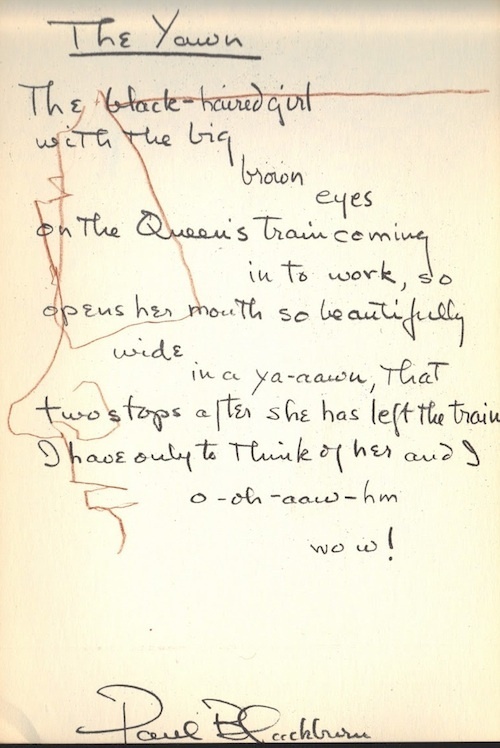 The Yawn
The black-haired girl
with the big
brown
eyes
on the Queens train coming
in to work, so
opens her mouth so beautifully
wide
in a ya-aawn, that
two stops after she has left the train
I have only to think of her and I
o-oh-aaw-hm
wow!
Paul Blackburn